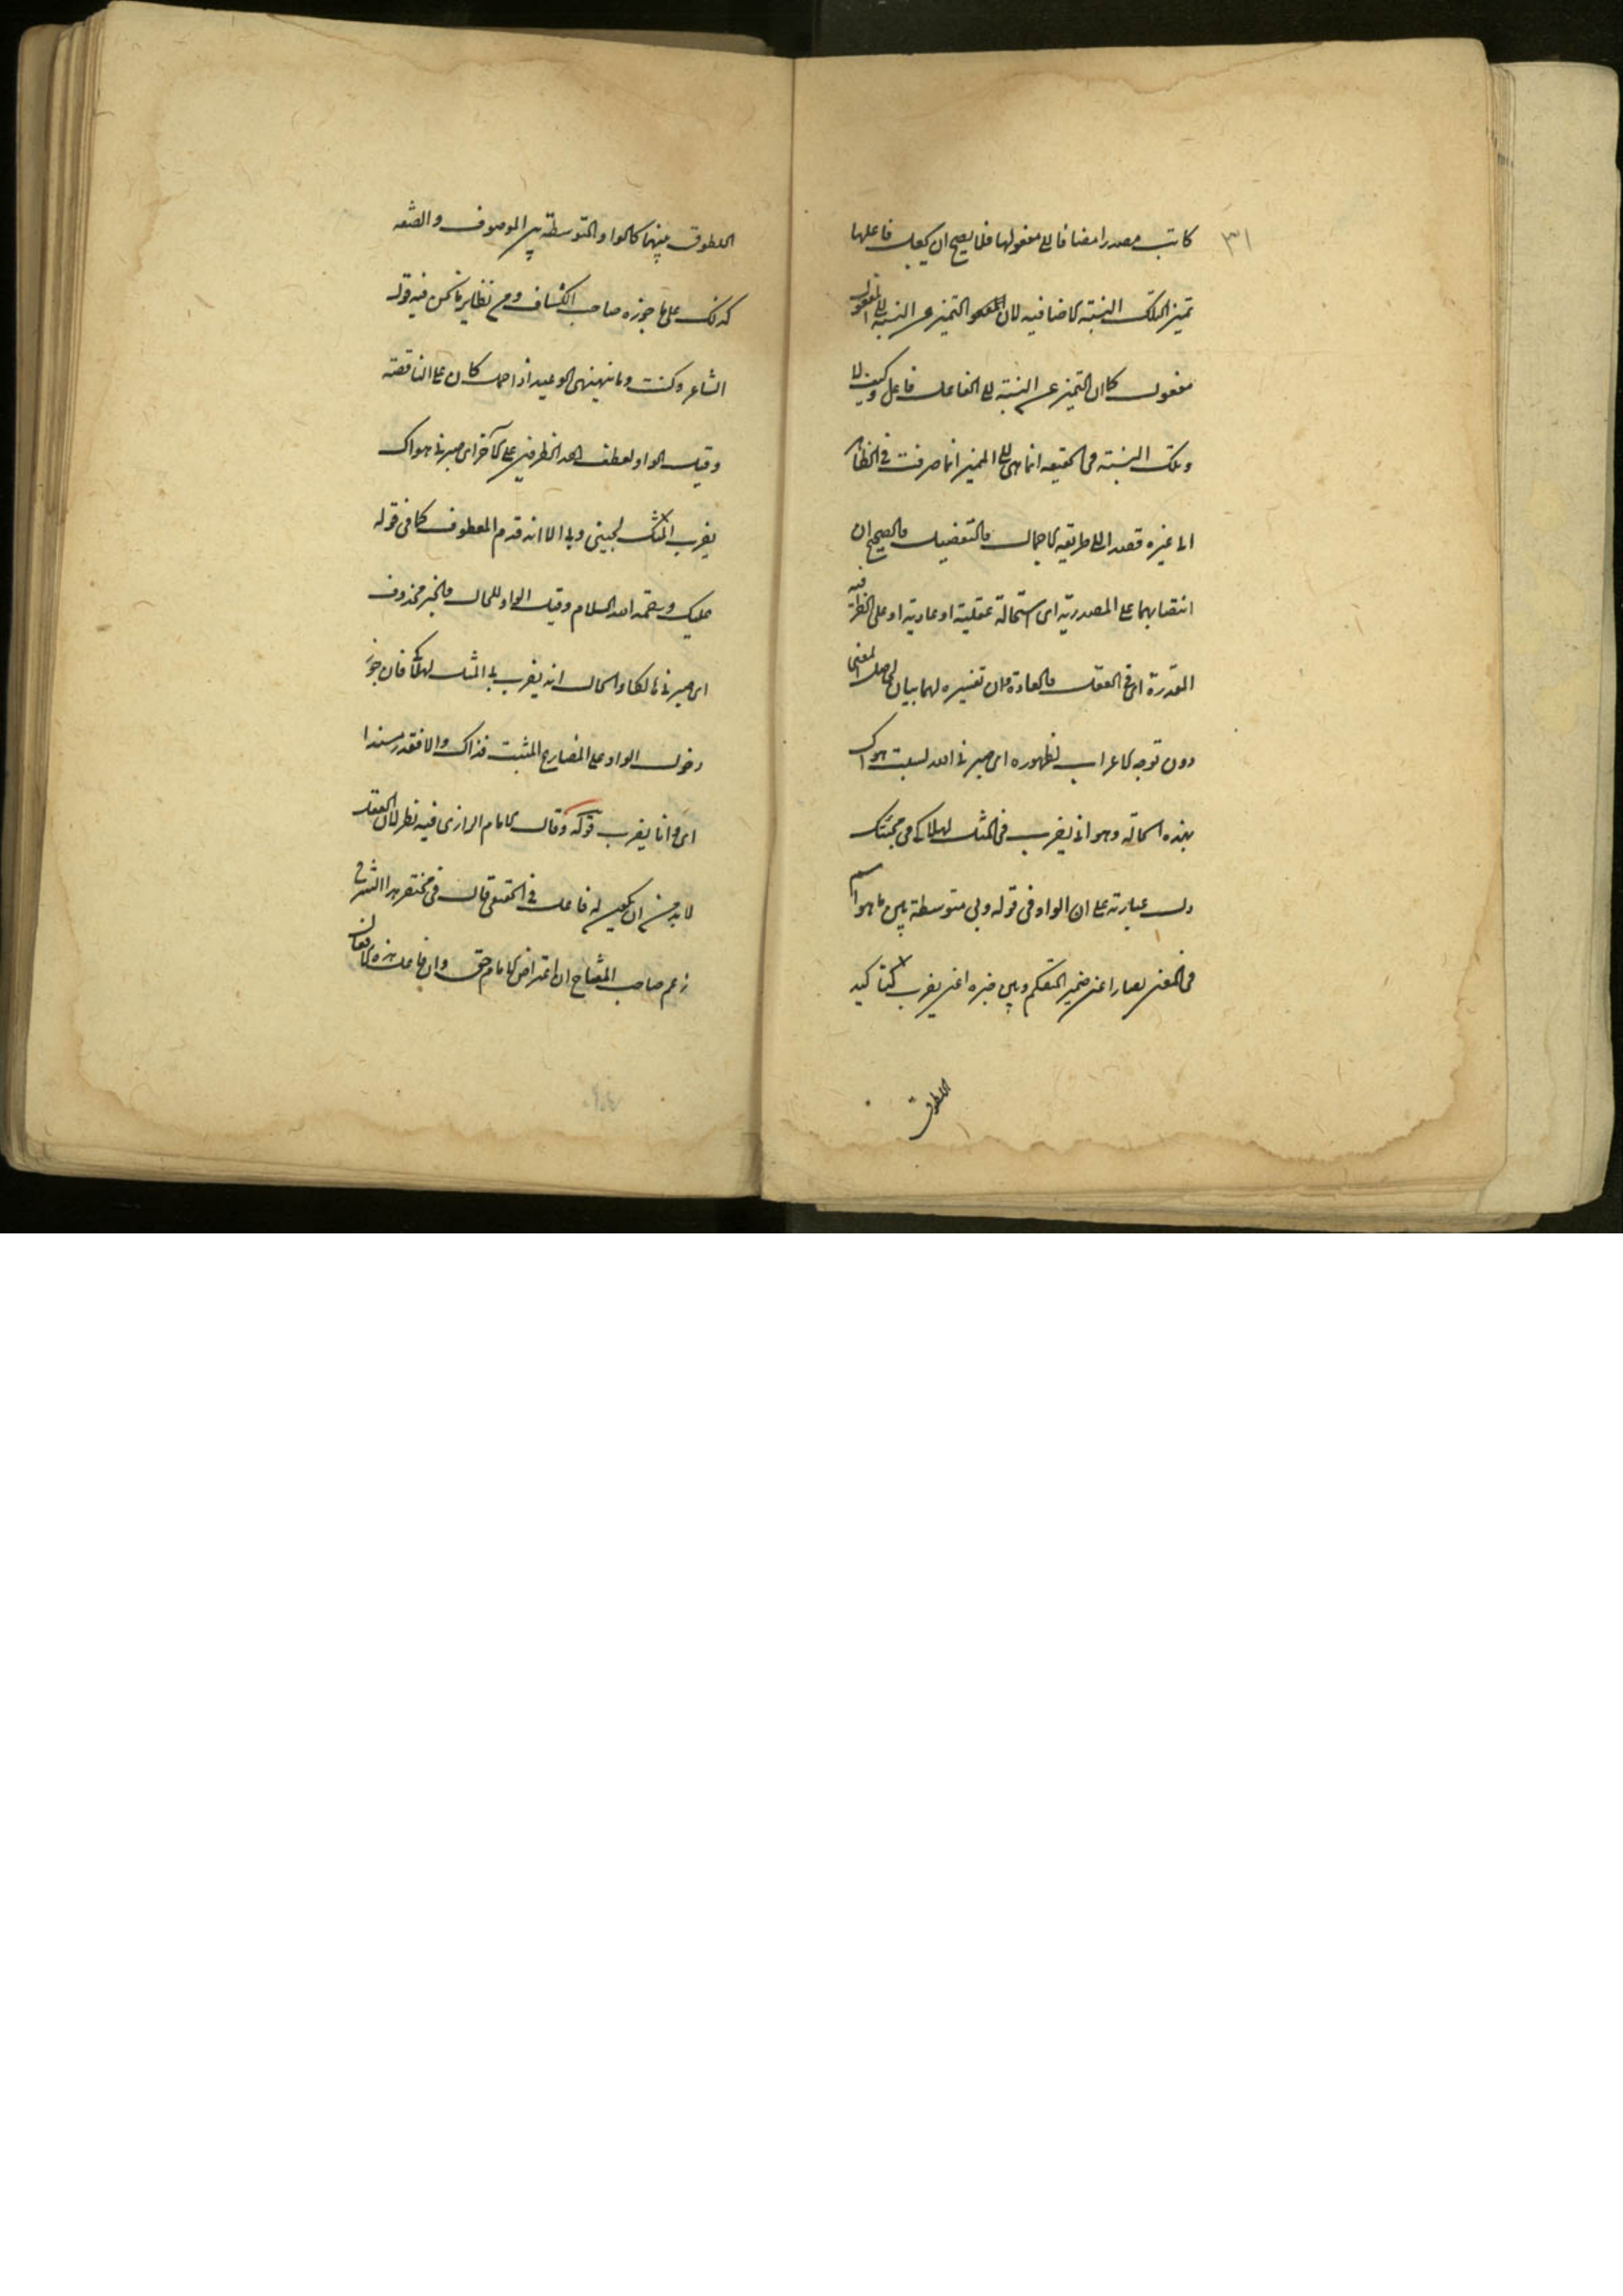 ٣١
كانت مصدرا مضافا الى مفعولها فلا يصح ان يجعل فاعلها
تميز لتلك النسبة الاضافيه لان التميز عن النسبة الى المفعول
مفعول كما ان التميز عن النسبة الى الفاعل فاعل وكيف لا
وتلك النسبة فى الحقيقه انما هى الى المميز انما صرفت فى الظاهر
الى غيره قصدا الى طريقه الاجمال والتفصيل والصحيح ان
انتصابهما على المصدرية اى استحالة عقلية او عادية او على الظرفيه
المقدرة اى فى العقل والعادة وان تفسيره لهما بيان لحاصل المعنى
دون توجه الاعراب لظهوره اى صيرنى الله بسبب هواك
بهذه الحاله وهو انى يضرب فى المثل لهلاكى فى محبتك
دلت عبارته على ان الواو فى قوله وبى متوسطة بين ما هو اسم
فى المعنى لصار اعنى ضمير المتكلم وبين خبره اعنى يضرب لتاكيد
اللصوق
اللصوق بينهما كالواو المتوسطة بين الموصوف والصفه
كذلك على ما جوزه صاحب الكشاف ومن نظاير ما نحن فيه قول
الشاعر وكنت وما ينهنهنى الوعيد اذا حمل كان على الناقصة
وقيل الواو لعطف احد الظرفين على الآخر اى صيرنى هواك
يضرب المثل لحينى وبى الا انه قدم المعطوف كما فى قوله
عليك ورحمة الله السلام وقيل الواو للحال والخبر محذوف
اى صيرنى هالكا والحال انه يضرب بى المثل لهلاكى فان جوز
دخول الواو على المضارع المثبت فذاك والا فقدر مبتدا
اى وانا يضرب قوله وقال الامام الرازى فيه نظر لان الفعل
لا بد من ان يكون له فاعل فى الحقيقى قال فى مختصر هذا الشرح
زعم صاحب المفتاح ان اعتراض الامام حق وان فاعل هذه الافعال